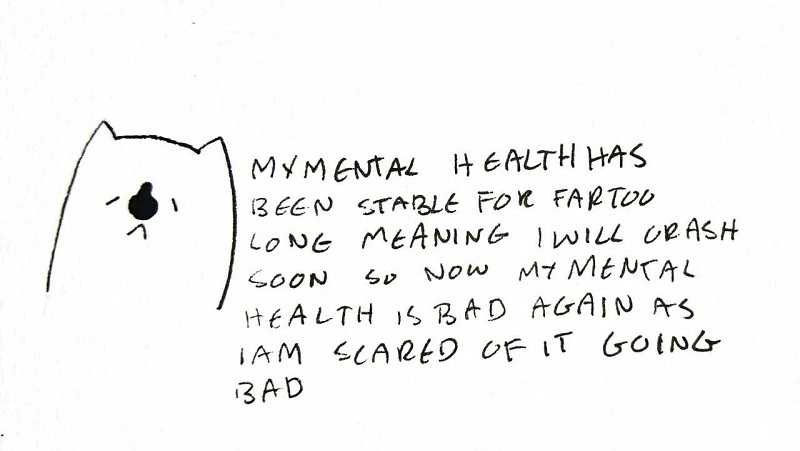 MY MENTAL HEALTH HAS
BEEN STABLE FOR FAR TOO
LONG MEANING I WILL CRASH
SOON SO NOW MY MENTAL
HEALTH IS BAD AGAIN AS
I AM SCARED OF IT GOING
BAD